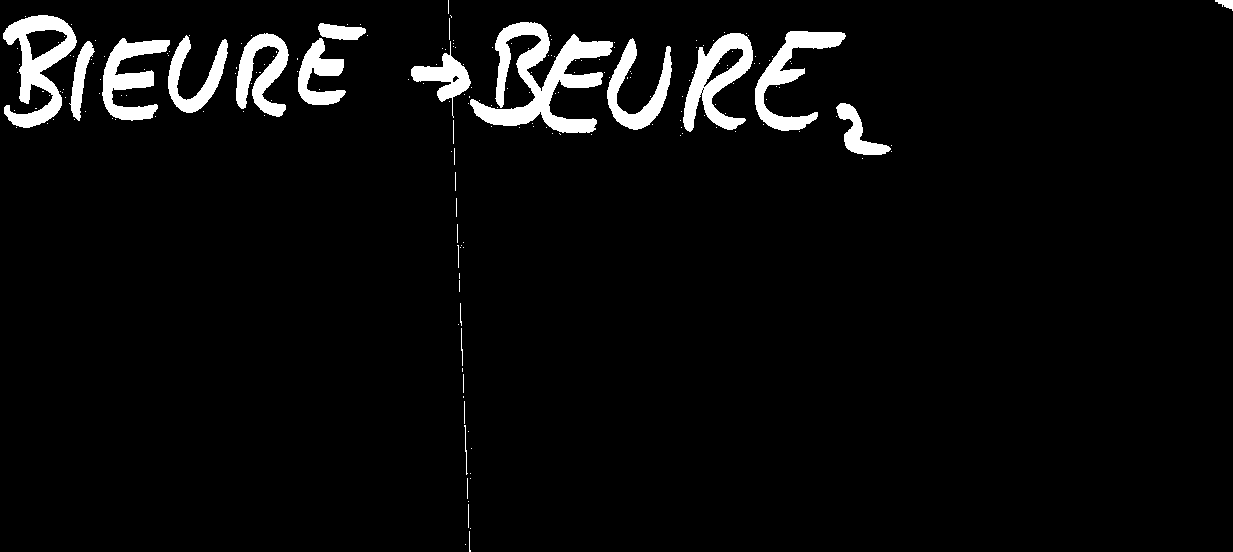 BIEURE → BEURE₂